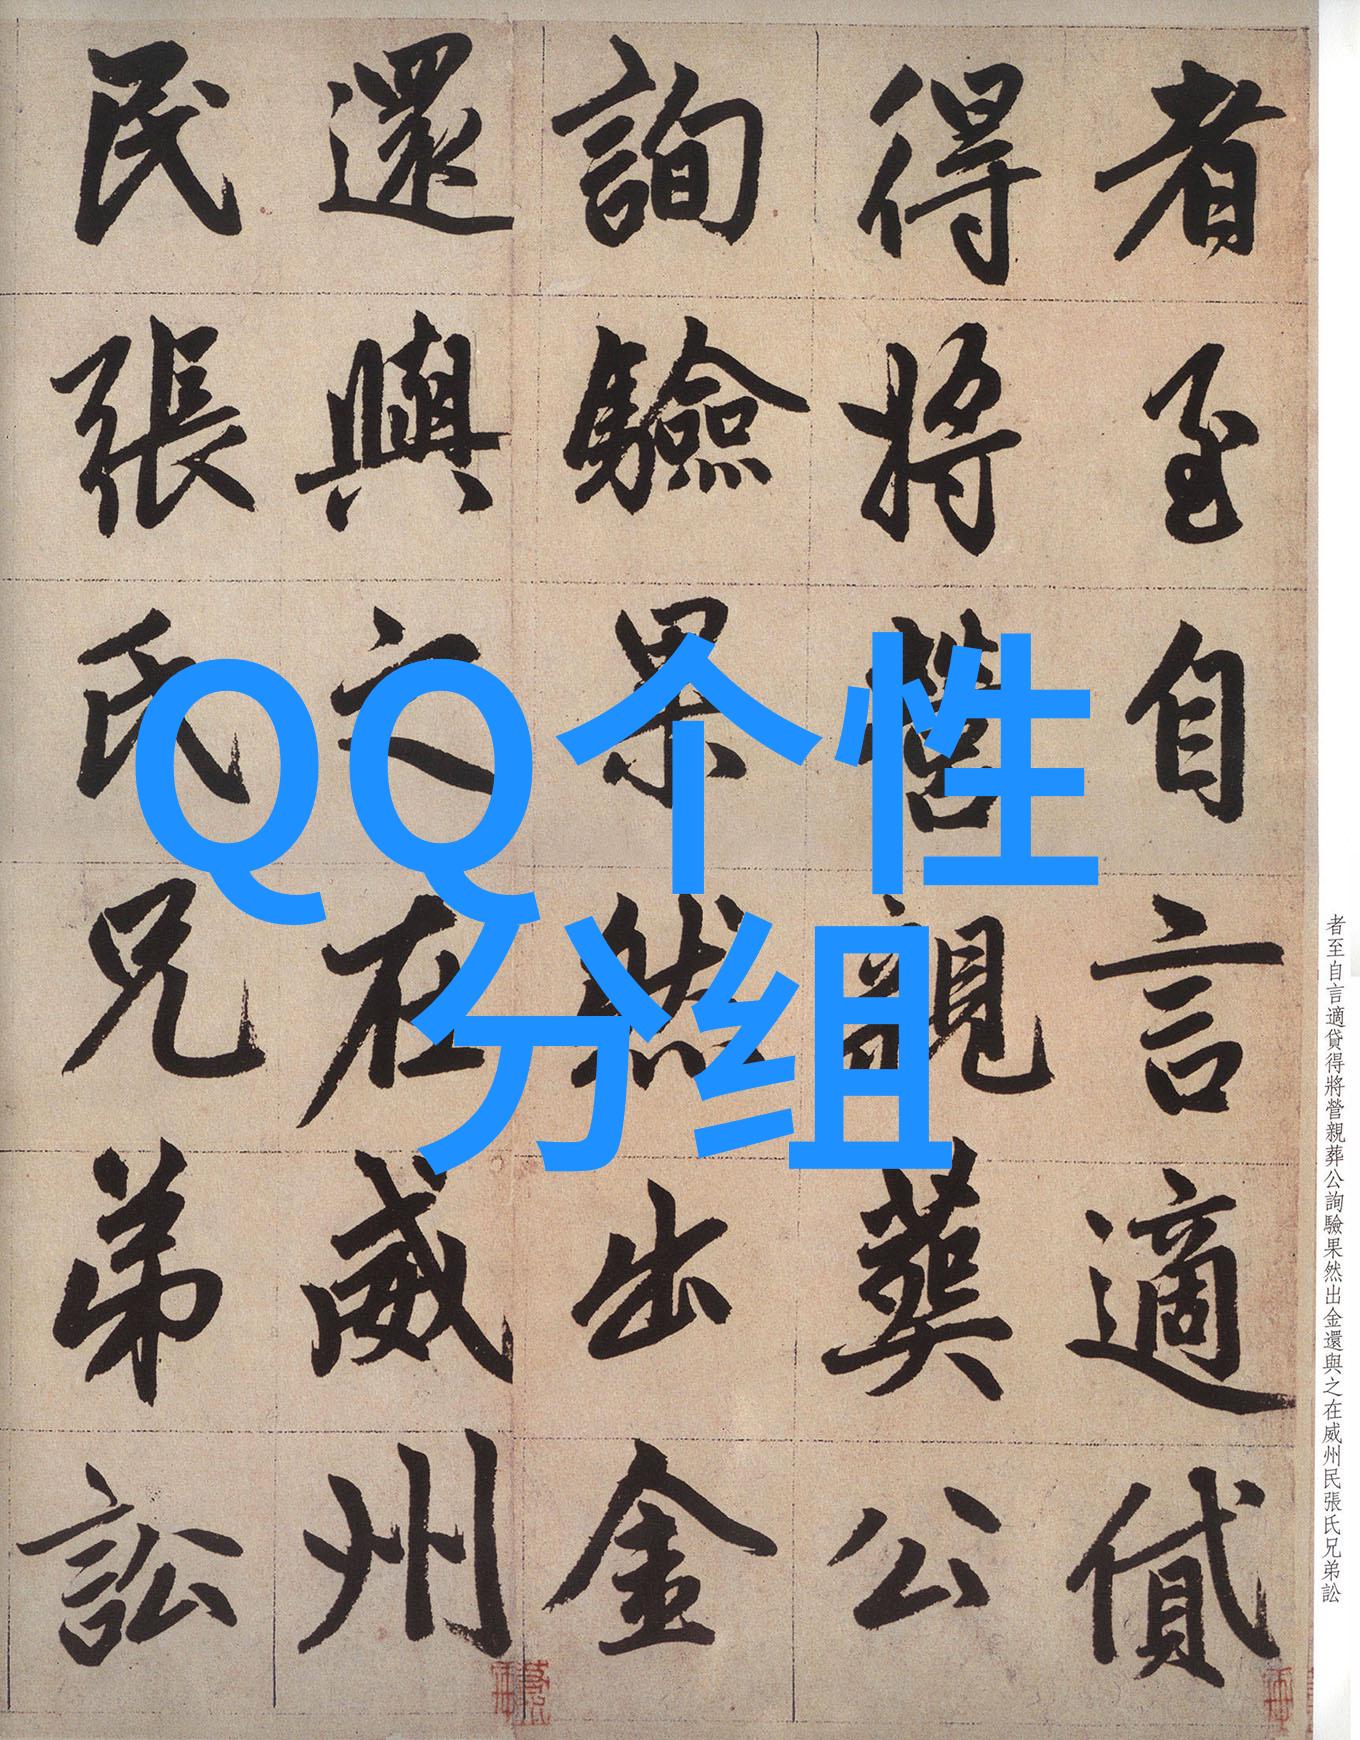 者至自言適貸
得將營親葬公
詢驗果然出金
還與之在威州
民張氏兄弟訟
QQ个性
分组
者至自言適貸得將營親葬公詢驗果然出金還與之在威州民張氏兄弟訟